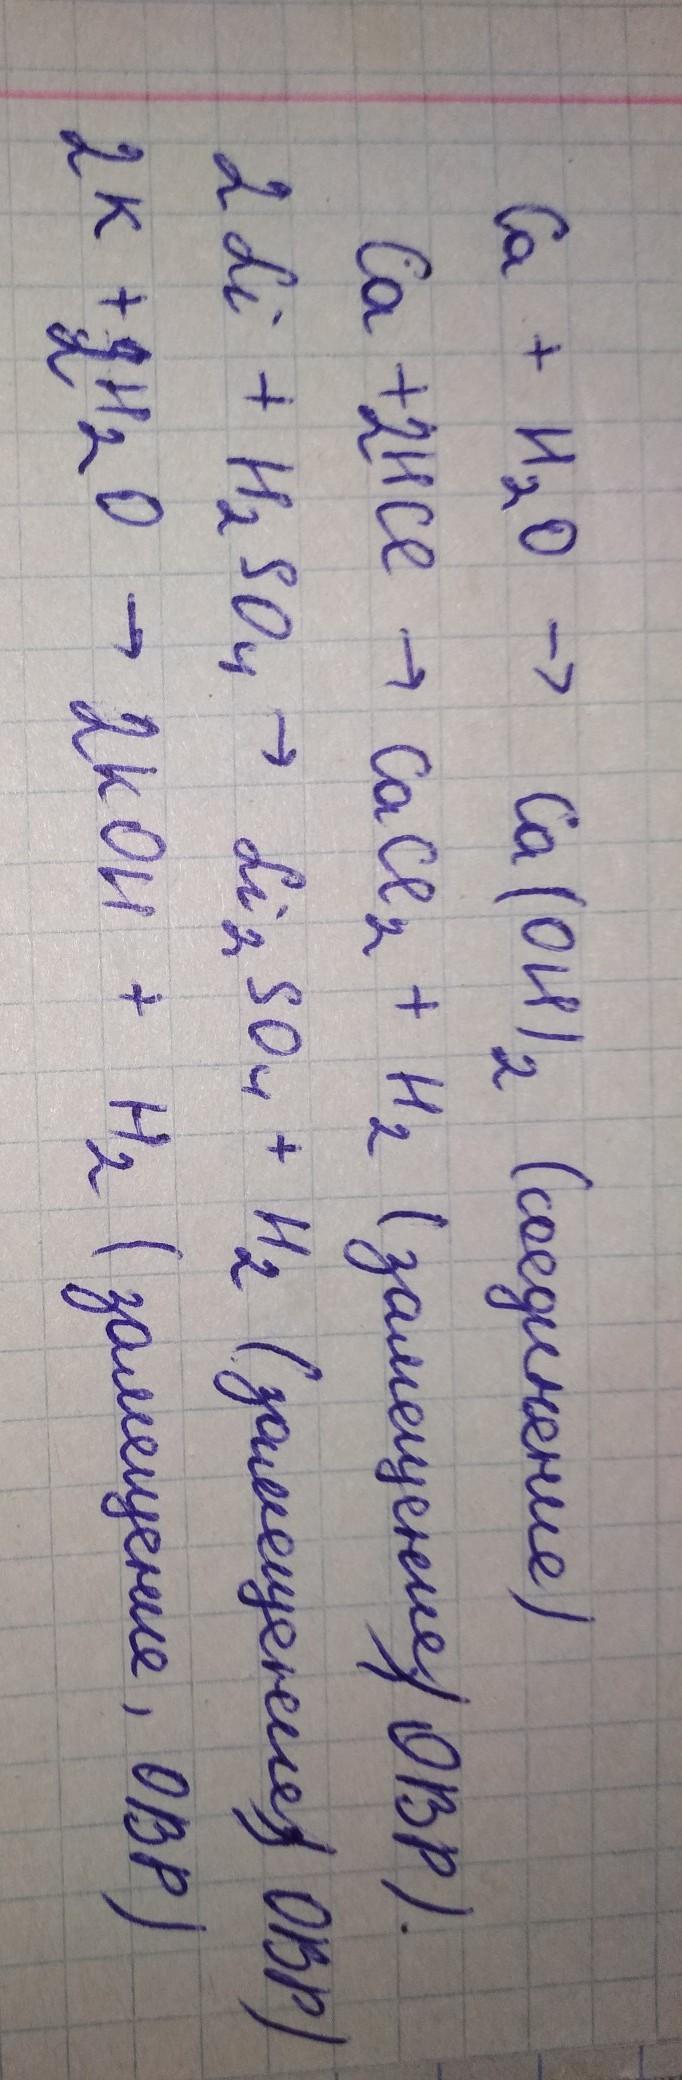 Ca + H₂O → Ca(OH)₂ (соединение)
Ca + 2HCl → CaCl₂ + H₂ (замещение, ОВР).
2Li + H₂SO₄ → Li₂SO₄ + H₂ (замещение, ОВР)
2K + 2H₂O → 2KOH + H₂ (замещение, ОВР)